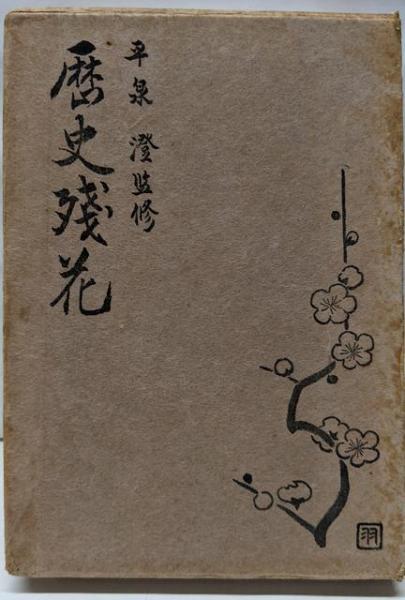 平泉 澄監修
歴史殘花
羽